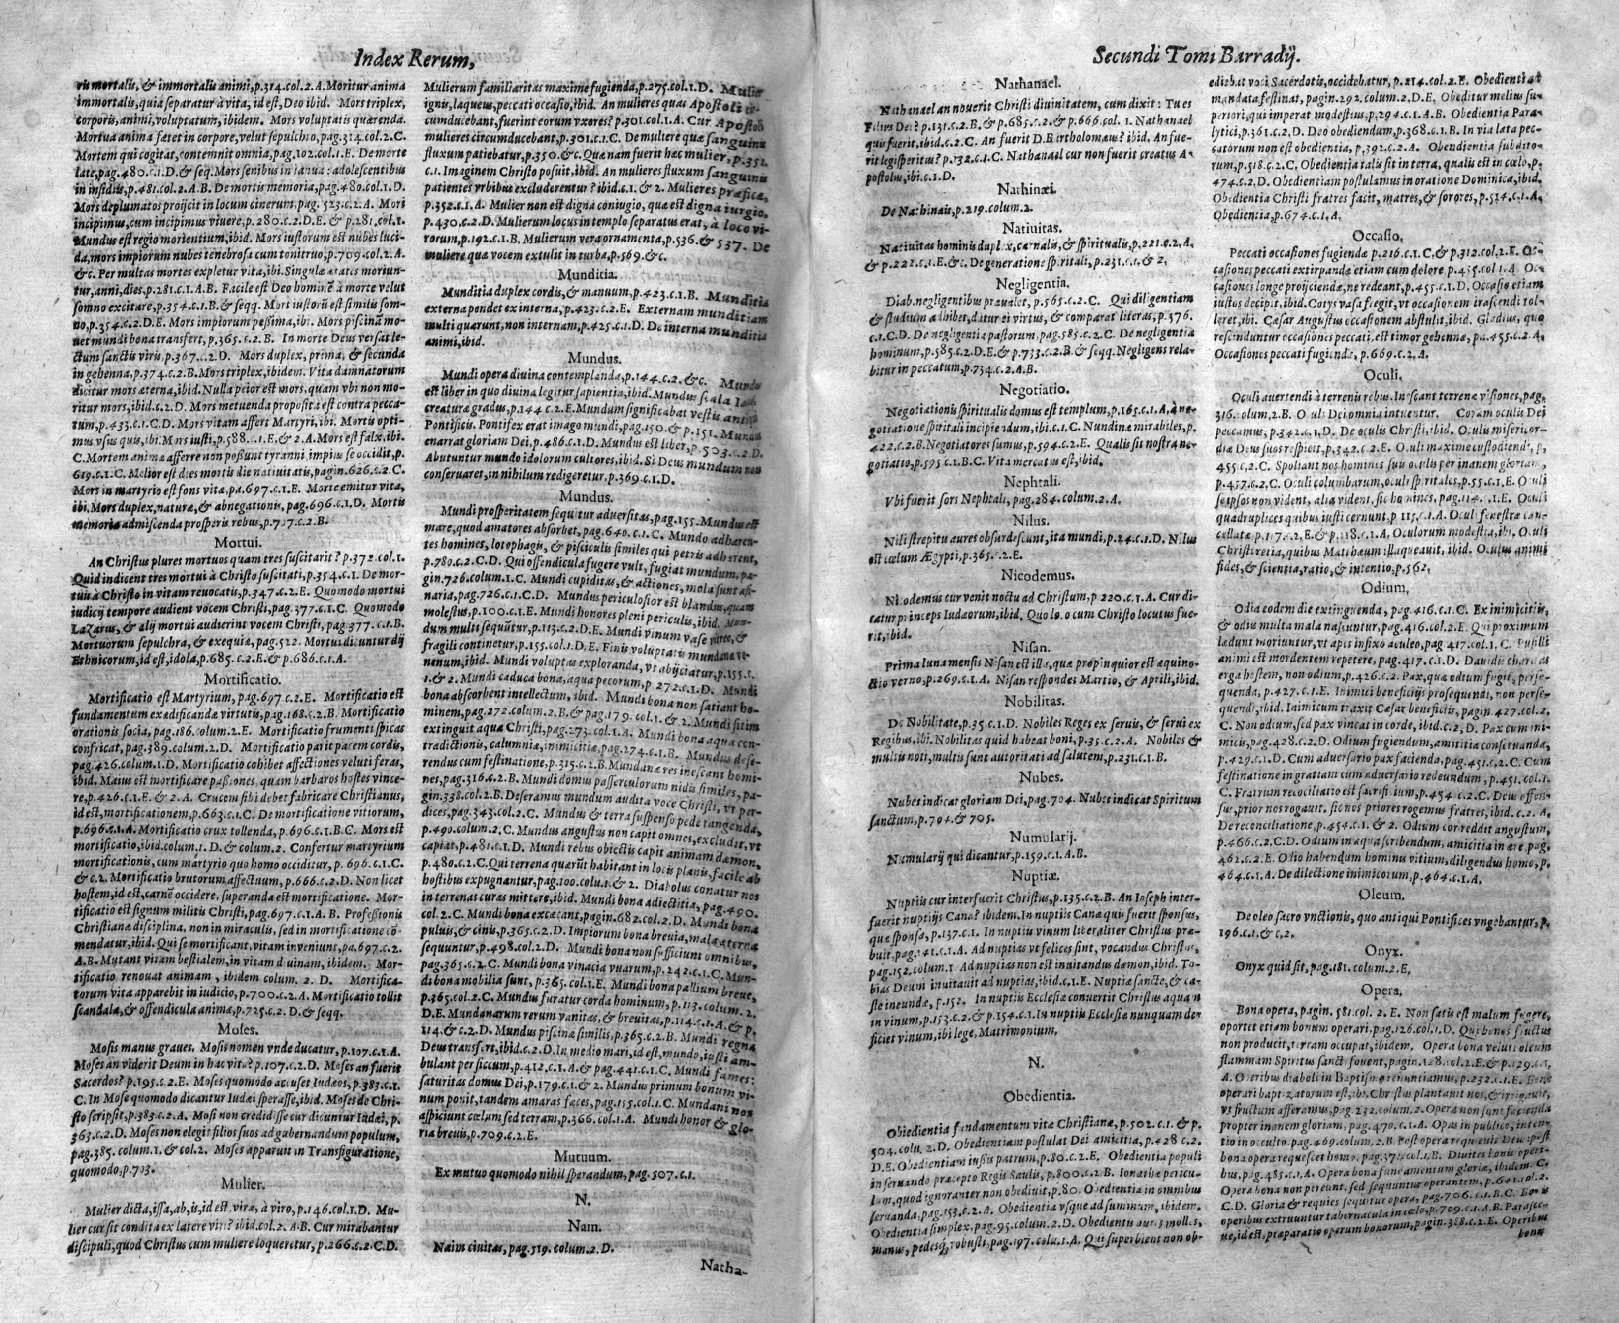 Index Rerum,
ris mortalis, & immortalis animi, p.314.col.2.A. Moritur anima
immortalis, quia separatur à vita, id est, Deo ibid. Mors triplex,
corporis, animi, voluptatum, ibidem. Mors voluptatis quærenda.
Mortua anima fœtet in corpore, velut sepulchro, pag.314.col.2.C.
Mortem qui cogitat, contemnit omnia, pag.102.col.1.E. De morte
late, pag.480.c.1.D. & seq. Mors senibus in ianua: adolescentibus
in insidijs, p.481.col.2.A.B. De mortis memoria, pag.480.col.1.D.
Mors deplumatos proijcit in locum cinerum. pag. 523.c.2.A. Mori
incipimus, cum incipimus vivere, p.280.c.2.D.E. & p.281.col.1.
Mundus est regio morientium, ibid. Mors iustorum est nubes luci-
da, mors impiorum nubes tenebrosa cum tonitruo, p.709.col.2.A.
&c. Per multas mortes expletur vita, ibi. Singulæ ætates moriun-
tur, anni, dies, p.281.c.1.A.B. Facile est Deo hominē à morte velut
somno excitare, p.354.c.1.B. & seqq. Mort iustorū est similis som-
no, p.354.c.2.D.E. Mors impiorum peßima, ibi. Mors piscinā mo-
net mundi bona transfert, p.365.c.2.E. In morte Deus versat le-
ctum sanctis viris, p.367.c.2.D. Mors duplex, prima, & secunda
in gehenna, p.374.c.2.B. Mors triplex, ibidem. Vita damnatorum
dicitur mors æterna, ibid. Nulla peior est mors, quam vbi non mo-
ritur mors, ibid.c.2.D. Mors metuenda proposita est contra pecca-
tum, p.433.c.1.C.D. Mors vitam affert Martyri, ibi. Mortis opti-
mus vsus quis, ibi. Mors iusti, p.588.c.1.E. & 2.A. Mors est falx, ibi.
C. Mortem animæ afferre non poßunt tyranni, impius se occidit, p.
619.c.1.C. Melior est dies mortis die natiuitatis, pagin.626.c.2.C.
Mors in martyrio est fons vitæ, pa.697.c.1.E. Morte emitur vita,
ibi. Mors duplex, naturæ, & abnegationis, pag.696.c.1.D. Mortis
memoria admiscenda prosperis rebus, p.727.c.2.B.
Mortui.
An Christus plures mortuos quam tres suscitarit? p.372.col.1.
Quid indicent tres mortui à Christo suscitati, p.354.c.1. De mor-
tuis à Christo in vitam reuocatis, p.347.c.2.E. Quomodo mortui
iudicij tempore audient vocem Christi, pag.377.c.1.C. Quomodo
Lazarus, & alij mortui audierint vocem Christi, pag.377.c.1.B.
Mortuorum sepulchra, & exequiæ, pag.522. Mortui dicuntur dij
Ethnicorum, id est, idola, p.685.c.2.E. & p.686.c.1.A.
Mortificatio.
Mortificatio est Martyrium, pag.697 c.2.E. Mortificatio est
fundamentum exædificandæ virtutis, pag.168.c.2.B. Mortificatio
orationis socia, pag.186.colum.2.E. Mortificatio frumenti spicas
confricat, pag.389.colum.2.D. Mortificatio parit pacem cordis,
pag.426.colum.1.D. Mortificatio cohibet affectiones veluti feras,
ibid. Maius est mortificare paßiones, quam barbaros hostes vince-
re, p.426.c.1.E. & 2.A. Crucem sibi debet fabricare Christianus,
id est, mortificationem, p.663.c.1.C. De mortificatione vitiorum,
p.696.c.1.A. Mortificatio crux tollenda, p.696.c.1.B.C. Mors est
mortificatio, ibid.colum.1.D. & colum.2. Confertur martyrium
mortificationis, cum martyrio quo homo occiditur, p.696.c.1.C.
& c.2. Mortificatio brutorum affectuum, p.666.c.2.D. Non licet
hostem, id est, carnē occidere, superanda est mortificatione. Mor-
tificatio est signum militis Christi, pag.697.c.1.A.B. Profeßionis
Christianæ disciplina, non in miraculis, sed in mortificatione cō-
mendatur, ibid. Qui se mortificant, vitam inveniunt, pa.697.c.2.
A.B. Mutant vitam bestialem, in vitam diuinam, ibidem. Mor-
tificatio renouat animam, ibidem colum.2.D. Mortifica-
torum vita apparebit in iudicio, p.700.c.2.A. Mortificatio tollit
scandala, & offendicula animæ, p.725.c.2.D. & seqq.
Moses.
Mosis manus graues. Mosis nomen vnde ducatur, p.107.c.1.A.
Moses an viderit Deum in hac vita? p.107.c.2.D. Moses an fuerit
Sacerdos? p.195.c.2.E. Moses quomodo accuset Iudæos, p.383.c.1.
C. In Mose quomodo dicantur Iudæi sperasse, ibid. Moses de Chri-
sto scripsit, p.383.c.2.A. Mosi non credidisse cur dicuntur Iudæi, p.
363.c.2.D. Moses non elegit filios suos ad gubernandum populum,
pag.385.colum.1.& col.2. Moses apparuit in Transfiguratione,
quomodo, p.703.
Mulier.
Mulier dicta, issa, ab, is, id est, vira, à viro, p.146.col.1.D. Mu-
lier cur sit condita ex latere viri? ibid.col.2.A.B. Cur mirabantur
discipuli, quod Christus cum muliere loqueretur, p.266.c.2.C.D.
Mulierum familiaritas maxime fugienda, p.275.col.1.D. Mulier
ignis, laqueus, peccati occasio, ibid. An mulieres quas Apostoli cir-
cumducebant, fuerint eorum vxores? p.301.col.1.A. Cur Apostoli
mulieres circumducebant, p.301.c.1.C. De muliere quæ sanguinis
fluxum patiebatur, p.350.&c. Quænam fuerit hæc mulier, p.352.
c.1. Imaginem Christo posuit, ibid. An mulieres fluxum sanguinis
patientes vrbibus excluderentur? ibid.c.1. & 2. Mulieres præficæ,
p.352.c.1.A. Mulier non est digna coniugio, quæ est digna iurgio,
p.430.c.2.D. Mulierum locus in templo separatus erat, à loco vi-
rorum, p.192.c.1.B. Mulierum vera ornamenta, p.536.& 537. De
muliere quæ vocem extulit in turba, p.569.&c.
Munditia.
Munditia duplex cordis, & manuum, p.423.c.1.B. Munditia
externa pendet ex interna, p.423.c.2.E. Externam munditiam
multi quærunt, non internam, p.425.c.1.D. De interna munditia
animi, ibid.
Mundus.
Mundi opera diuina contemplanda, p.144.c.2.&c. Mundus
est liber in quo diuina legitur sapientia, ibid. Mundus scala Iacob
creaturæ gradus, p.144 c.2.E. Mundum significabat vestis antiqui
Pontificis. Pontifex erat imago mundi, pag.150.& p.151. Mundus
enarrat gloriam Dei, p.486.c.1.D. Mundus est liber, p.503.c.2.D.
Abutuntur mundo idolorum cultores, ibid. Si Deus mundum non
conseruaret, in nihilum redigeretur, p.369.c.1.D.
Mundus.
Mundi prosperitatem sequitur aduersitas, pag.155. Mundus est
mare, quod amatores absorbet, pag.640.c.1.C. Mundo adhæren-
tes homines, lotophagis, & pisciculis similes qui petris adhærent,
p.780.c.2.C.D. Qui offendicula fugere vult, fugiat mundum, pa-
gin.726.colum.1.C. Mundi cupiditas, & actiones, mola sunt asi-
naria, pag.726.c.1.C.D. Mundus periculosior est blandus, quam
molestus, p.100.c.1.E. Mundi honores pleni periculis, ibid. Mun-
dum multi sequūtur, p.113.c.2.D.E. Mundi vinum vase vitreo, &
fragili continetur, p.155.col.1.D.E. Finis voluptatis mundanæ ve-
nenum, ibid. Mundi voluptas exploranda, vt abijciatur, p.155.c.
1.& 2. Mundi caduca bona, aqua pecorum, p.272.c.1.D. Mundi
bona absorbent intellectum, ibid. Mundi bona non satiant ho-
minem, pag.272.colum.2.B. & pag.179.col.1.& 2. Mundi sitim
extinguit aqua Christi, pag.273.col.1.A. Mundi bona aqua con-
tradictionis, calumnia, inimicitia, pag.274.c.1.B. Mundus dese-
rendus cum festinatione, p.315.c.2.B. Mundanæ res inescant homi-
nes, pag.316.c.2.B. Mundi domus passerculorum nidis similes, pa-
gin.338.col.2.B. Deseramus mundum audita voce Christi, vt per-
dices, pag.343.col.2.C. Mundus & terra suspenso pede tangenda,
p.490.colum.2.C. Mundus angustus non capit omnes, excludit, vt
capiat, p.481.c.1.D. Mundi rebus obiectis capit animam dæmon,
p.480.c.2.C. Qui terrena quærūt habitant in locis planis, facile ab
hostibus expugnantur, pag.100.colu.1.& 2. Diabolus conatur nos
in terrenas curas mittere, ibid. Mundi bona adiectitia, pag.490.
col.2.C. Mundi bona excæcant, pagin.682.col.2.D. Mundi bona
puluis, & cinis, p.365.c.2.D. Impiorum bona breuia, mala æterna
sequuntur, p.498.col.2.D. Mundi bona non sufficiunt omnibus,
pag.365.c.2.C. Mundi bona vinacia vuarum, p.242.c.1.C. Mun-
di bona mobilia sunt, p.365.col.1.E. Mundi bona pallium breue,
p.365.col.2.C. Mundus furatur corda hominum, p.113.colum.2.
D.E. Mundanarum rerum vanitas, & breuitas, p.114.c.1.A. & p.
114.& c.2.D. Mundus piscinæ similis, p.365.c.2.B. Mundi regna
Deus transfert, ibid.c.2.D. In medio mari, id est, mundo, iusti am-
bulant per siccum, p.412.c.1.A. & pag.441.c.1.C. Mundi fames:
saturitas domus Dei, p.179.c.1.& 2. Mundus primum bonum vi-
num ponit, tandem amaras fæces, pag.115.col.1.C. Mundani nos
aspiciunt cœlum sed terram, p.366.col.1.A. Mundi honor & glo-
ria breuis, p.709.c.2.E.
Mutuum.
Ex mutuo quomodo nihil sperandum, pag.507.c.1.
N.
Nain.
Naim ciuitas, pag.519.colum.2.D.
Natha-
Secundi Tomi Barradij.
Nathanael.
Nathanael an nouerit Christi diuinitatem, cum dixit: Tu es
Filius Dei? p.131.c.2.B. & p.685.c.2.& p.666.col.1. Nathanael
quis fuerit, ibid.c.2.C. An fuerit D. Bartholomæus? ibid. An fue-
rit legisperitus? p.132.c.1.C. Nathanael cur non fuerit creatus A-
postolus, ibi.c.1.D.
Nathinæi.
De Nathinais, p.219.colum.2.
Natiuitas.
Natiuitas hominis duplex, carnalis, & spiritualis, p.221.c.2.A.
& p.222.c.1.E.&c. De generatione spiritali, p.231.c.1.& 2.
Negligentia.
Diab. negligentibus præualet, p.565.c.2.C. Qui diligentiam
& studium adhibet, datur ei virtus, & comparat literas, p.576.
c.1.C.D. De negligentia pastorum, pag.585.c.2.C. De negligentia
hominum, p.585.c.2.D.E. & p.733.c.2.B. & seqq. Negligens rela-
bitur in peccatum, p.734.c.2.A.B.
Negotiatio.
Negotiationis spiritualis domus est templum, p.165.c.1.A. à ne-
gotiatione spiritali incipiendum, ibi.c.1.C. Nundinæ mirabiles, p.
422.c.2.B. Negotiatores sumus, p.594.c.2.E. Qualis sit nostra ne-
gotiatio, p.595 c.1.B.C. Vita mercatus est, ibid.
Nephtali.
Vbi fuerit sors Nephtali, pag.284.colum.2.A.
Nilus.
Nili strepitu aures obsurdescunt, ita mundi, p.24.c.1.D. Nilus
est cœlum Ægypti, p.365.c.2.E.
Nicodemus.
Nicodemus cur venit noctu ad Christum, p.220.c.1.A. Cur di-
catur princeps Iudæorum, ibid. Quo loco cum Christo locutus fue-
rit, ibid.
Nisan.
Prima luna mensis Nisan est illa, quæ propinquior est æquino-
ctio verno, p.269.c.1.A. Nisan respondet Martio, & Aprili, ibid.
Nobilitas.
De Nobilitate, p.35 c.1.D. Nobiles Reges ex seruis, & serui ex
Regibus, ibi. Nobilitas quid habeat boni, p.35.c.2.A. Nobiles &
multis noti, multis sunt autoritati ad salutem, p.231.c.1.B.
Nubes.
Nubes indicat gloriam Dei, pag.704. Nubes indicat Spiritum
sanctum, p.704.& 705.
Numularij.
Numularij qui dicantur, p.159.c.1.A.B.
Nuptiæ.
Nuptiis cur interfuerit Christus, p.135.c.2.B. An Ioseph inter-
fuerit nuptijs Canæ? ibidem. In nuptiis Canæ qui fuerit sponsus,
quæ sponsa, p.137.c.1. In nuptiis vinum liberaliter Christus præ-
buit, pag.141.c.1.A. Ad nuptias vt felices sint, vocandus Christus,
pag.152.colum.1 A. Ad nuptias non est inuitandus dæmon, ibid. To-
bias Deum inuitauit ad nuptias, ibid.c.1.E. Nuptiæ sanctè, & ca-
stè ineundæ, p.152. In nuptiis Ecclesiæ conuertit Christus aquam
in vinum, p.153.c.2.& p.154.c.1. In nuptiis Ecclesiæ nunquam de-
ficiet vinum, ibi lege, Matrimonium.
N.
Obedientia.
Obiedientia fundamentum vitæ Christianæ, p.502.c.1.& p.
504.colu.2.D. Obedientiam postulat Dei amicitia, p.428 c.2.
D.E. Obedientiam iußis patrum, p.80.c.2.E. Obedientia populi
in seruando præcepto Regis Saulis, p.800.c.2.B. Ionathæ pericu-
lum, quod ignoranter non obediuit, p.80. Obedientia in omnibus
seruanda, pag.153.c.2.A. Obedientia vsque ad summum, ibidem.
Obedientia simplex. pag.95.colum.2.D. Obedientis aures molles,
manus, pedesq; robusti, pag.197.colu.1.A. Qui superbient non ob-
ediebat voci Sacerdotis, occidebatur, p.214.col.2.E. Obedientia ad
mandata festinat, pagin.292.colum.2.D.E. Obeditur melius su-
periori, qui imperat modestius, p.294.c.1.A.B. Obedientia Para-
lytici, p.361.c.2.D. Deo obediendum, p.368.c.1.B. In via lata pec-
catorum non est obedientia, p.392.c.2.A. Obendientia subdito-
rum, p.518.c.2.C. Obedientia talis sit in terra, qualis est in cœlo, p.
474.c.2.D. Obedientiam postulamus in oratione Dominica, ibid.
Obedientia Christi fratres facit, matres, & sorores, p.514.c.1.A.
Obedientia, p.674.c.1.A.
Occasio.
Peccati occasiones fugiendæ p.216.c.1.C. & p.312.col.2.E. Oc-
casiones peccati extirpandæ etiam cum dolore p.455.col.1.A. Oc-
casiones longe proijciendæ, ne redeant, p.455.c.1.D. Occasio etiam
iustos decipit, ibid. Cotys vasa fregit, vt occasionem irascendi tol-
leret, ibi. Cæsar Augustus occasionem abstulit, ibid. Gladius, quo
rescinduntur occasiones peccati, est timor gehennæ, pa.455.c.2.A.
Occasiones peccati fugiendæ, p.669.c.2.A.
Oculi.
Oculi auertendi à terrenis rebus. Inescant terrena visiones, pag.
316.colum.2.B. Oculi Dei omnia intuentur. Coram oculis Dei
peccamus, p.342.c.1.D. De oculis Christi, ibid. Oculis misericor-
diæ Deus suos respicit, p.342.c.2.E. Oculi maxime custodiendi, p.
455.c.2.C. Spoliant nos homines suis oculis per inanem gloriam,
p.457.c.2.C. Oculi columbarum, oculi spiritales, p.55.c.1.E. Oculi
seipsos non vident, alia vident, sic homines, pag.114.c.1.E. Oculi
quadruplices quibus iusti cernunt, p.115.c.1.A. Oculi fenestræ can-
cellatæ, p.117.c.2.E. & p.118.c.1.A. Oculorum modestia, ibi. Oculi
Christi retia, quibus Matthæum illaqueauit, ibid. Oculus animi
fides, & scientia, ratio, & intentio, p.562.
Odium.
Odia eodem die extinguenda, pag.416.c.1.C. Ex inimicitiis,
& odiis multa mala nascuntur, pag.416.col.2.E. Qui proximum
lædunt moriuntur, vt apis infixo aculeo, pag.417.col.1.C. Pusilli
animi est mordentem repetere, pag.417.c.1.D. Dauidis charitas
erga hostem, non odium, p.426.c.2. Pax, qua odium fugit, perse-
quenda, p.427.c.1.E. Inimici beneficijs prosequendi, non perse-
quendi, ibid. Inimicum traxit Cæsar beneficiis, pagin.427.col.2.
C. Non odium, sed pax vincat in corde, ibid.c.2.D. Pax cum ini-
micis, pag.428.c.2.D. Odium fugiendum, amicitia conseruanda,
p.429.c.1.D. Cum aduersario pax facienda, pag.451.c.2.C. Cum
festinatione in gratiam cum aduersario redeundum, p.451.col.1.
C. Fratrum reconciliatio est sacrificium, p.454 c.2.C. Deus offen-
sus, prior nos rogauit, sic nos priores rogemus fratres, ibid.c.2.A.
De reconciliatione, p.454.c.1.& 2. Odium cor reddit angustum,
p.466.c.2.C.D. Odium in aqua scribendum, amicitia in ære pag.
462.c.2.E. Odio habendum hominis vitium, diligendus homo, p.
464.c.1.A. De dilectione inimicorum, p.464.c.1.A.
Oleum.
De oleo sacro vnctionis, quo antiqui Pontifices vngebantur, p.
196.c.1.& c.2.
Onyx.
Onyx quid sit, pag.181.colum.2.E.
Opera.
Bona opera, pagin.581.col.2.E. Non satis est malum fugere,
oportet etiam bonum operari, pag.126.col.1.D. Qui bonos fructus
non producit, terram occupat, ibidem. Opera bona veluti oleum
flammam Spiritus sancti fouent, pagin.128.col.2.E. & p.129.c.1.
A. Operibus diaboli in Baptismo renuntiamus, p.232.c.1.E. Bene
operari baptizatorum est, ibi. Christus plantauit nos, & irrigauit,
vt fructum afferamus, pag.232.colum.2. Opera non sunt facienda
propter inanem gloriam, pag.470.c.1.A. Opus in publico, inten-
tio in occulto. pag.469.colum.2.B. Post opera requieuit Deus: post
bona opera requiescet homo, pag.372.col.1.B. Diuites bonis operi-
bus, p.485.c.1.A. Opera bona fundamentum gloriæ, ibidem.C.
Opera bona non pereunt, sed sequuntur operantem, p.641.col.2.
C.D. Gloria & requies sequitur opera, pag.706.c.1.B.C. Bonis
operibus extruuntur tabernacula in cœlo, p.709.c.1.B. Parasce-
ue, id est, præparatio operum bonorum, pagin.318.c.2.E. Operibus
bonis